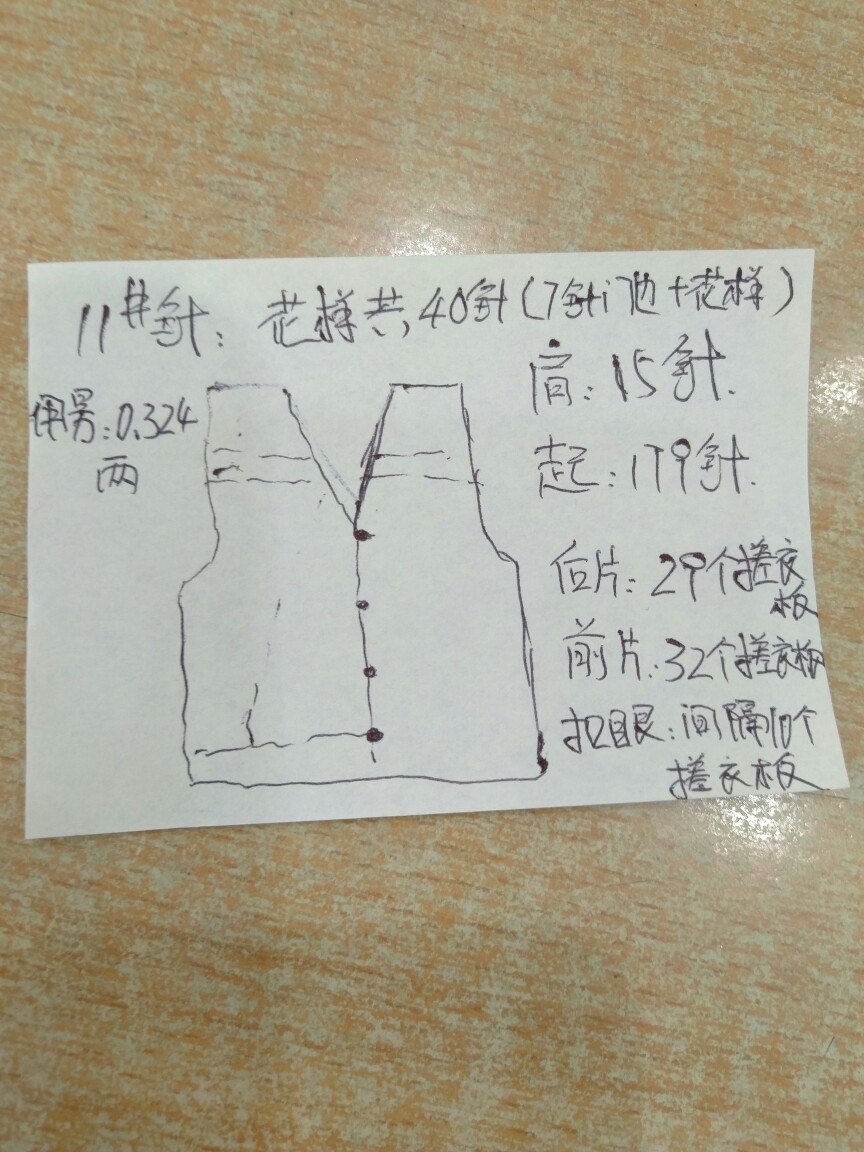 11#针: 花样共40针(7针门地+花样)
用男:0.324
两
肩:15针.
起:179针.
后片:29个搓衣
板
前片:32个搓衣板
扣目眼:间隔10个
搓衣板